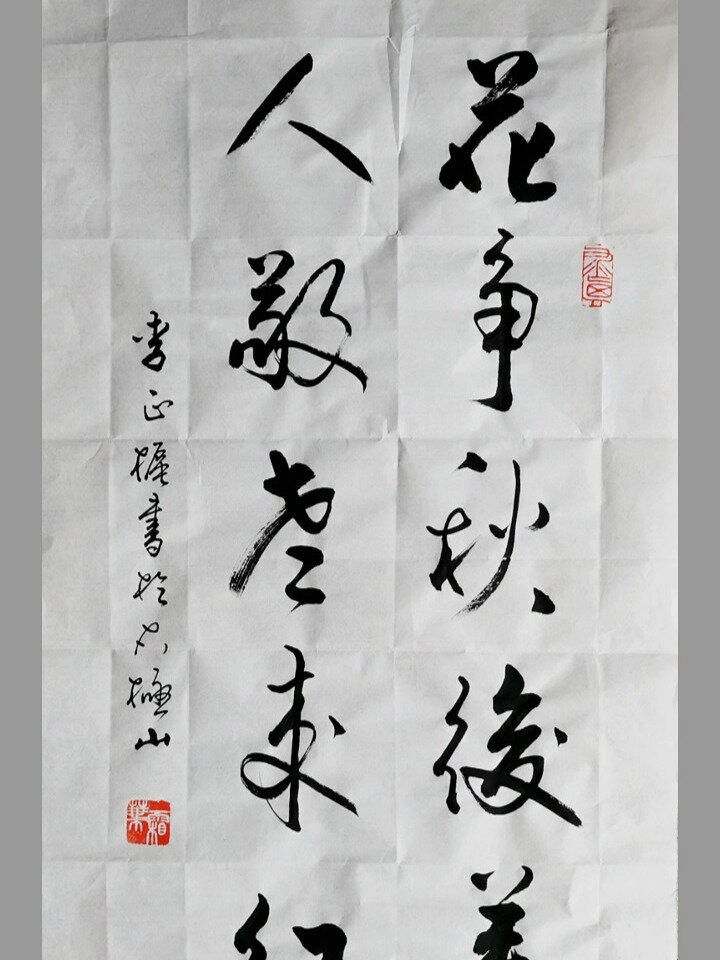 花争秋後美
人敬老来红
李正振書於太極山